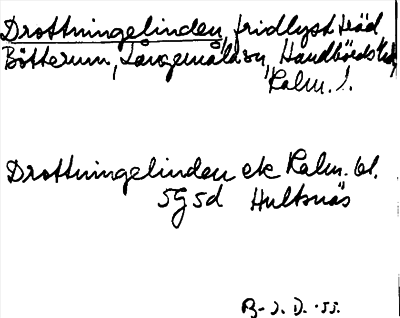 Drottningelinden, fridlyst träd
Bötterum, Långemåla sn, Handbörds hd,
Kalm. l.
Drottningelinden ek Kalm. bl.
5G5d Hultsnäs
B-J. D. -55.